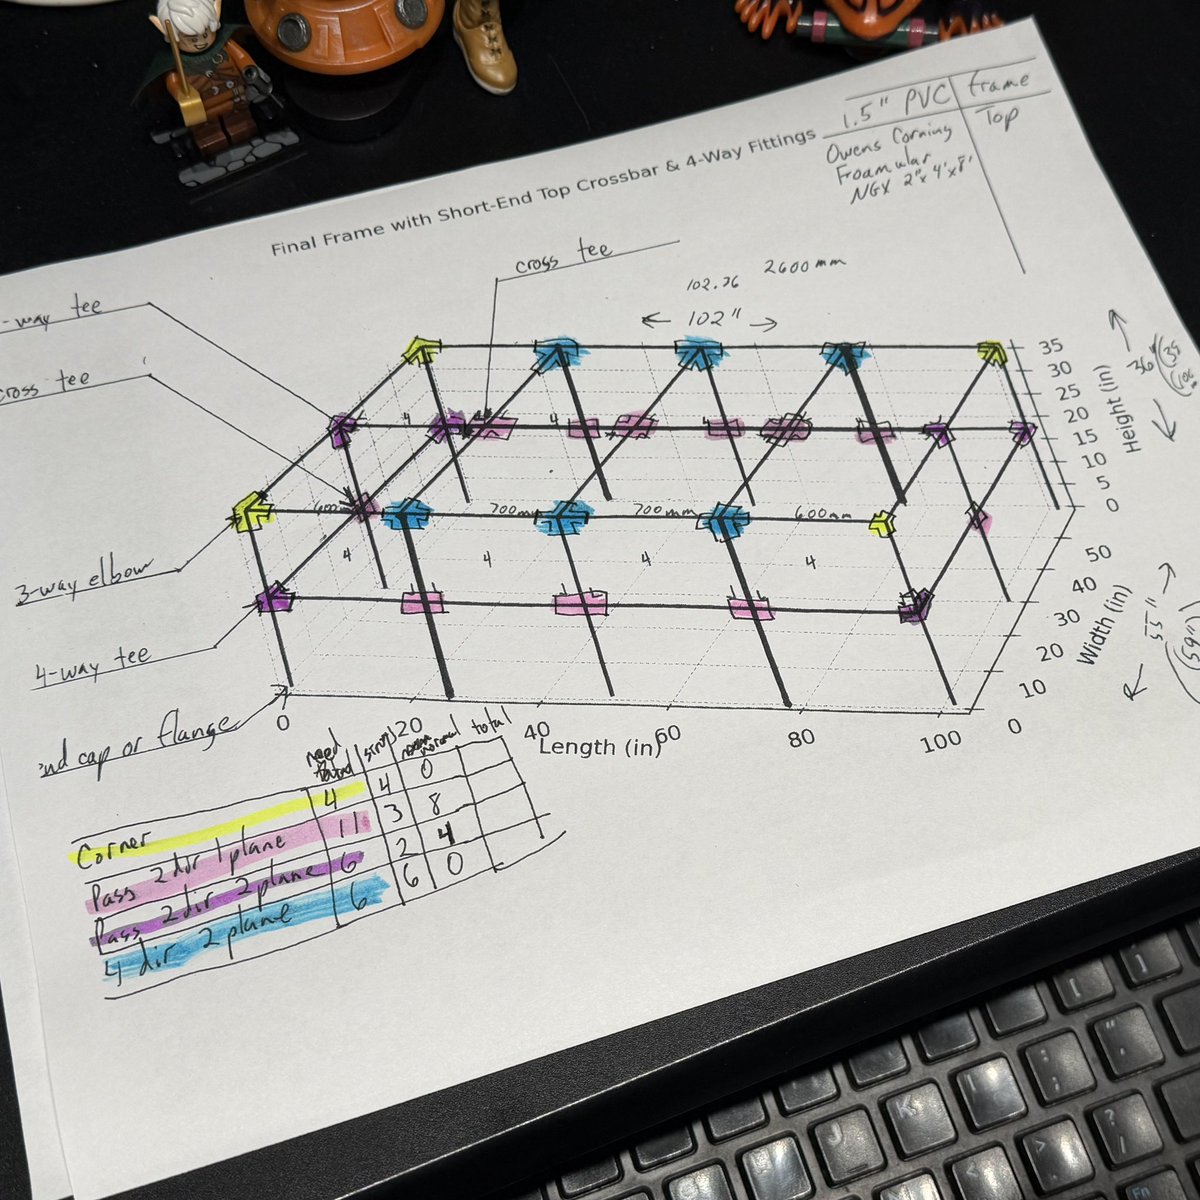 1.5" PVC frame
Owens Corning Top
Foamular
NGX 2"x4'x8'
Final Frame with Short-End Top Crossbar & 4-Way Fittings
cross tee
-way tee
102.36 2600mm
← 102" →
cross tee
35
30
25
20
15
10
5
0
Height (in)
36"
4
4
600mm
700mm
700mm
600mm
4
4
4
4
3-way elbow
4-way tee
nd cap or flange
50
40
30
20
10
0
Width (in)
55"
0
20
40
60
80
100
Length (in)
need
found
normal
total
Corner 4 4 0
Pass 2dir 1plane 11 3 8
Pass 2dir 2plane 6 2 4
4 dir 2 plane 6 6 0
K
J
Fn